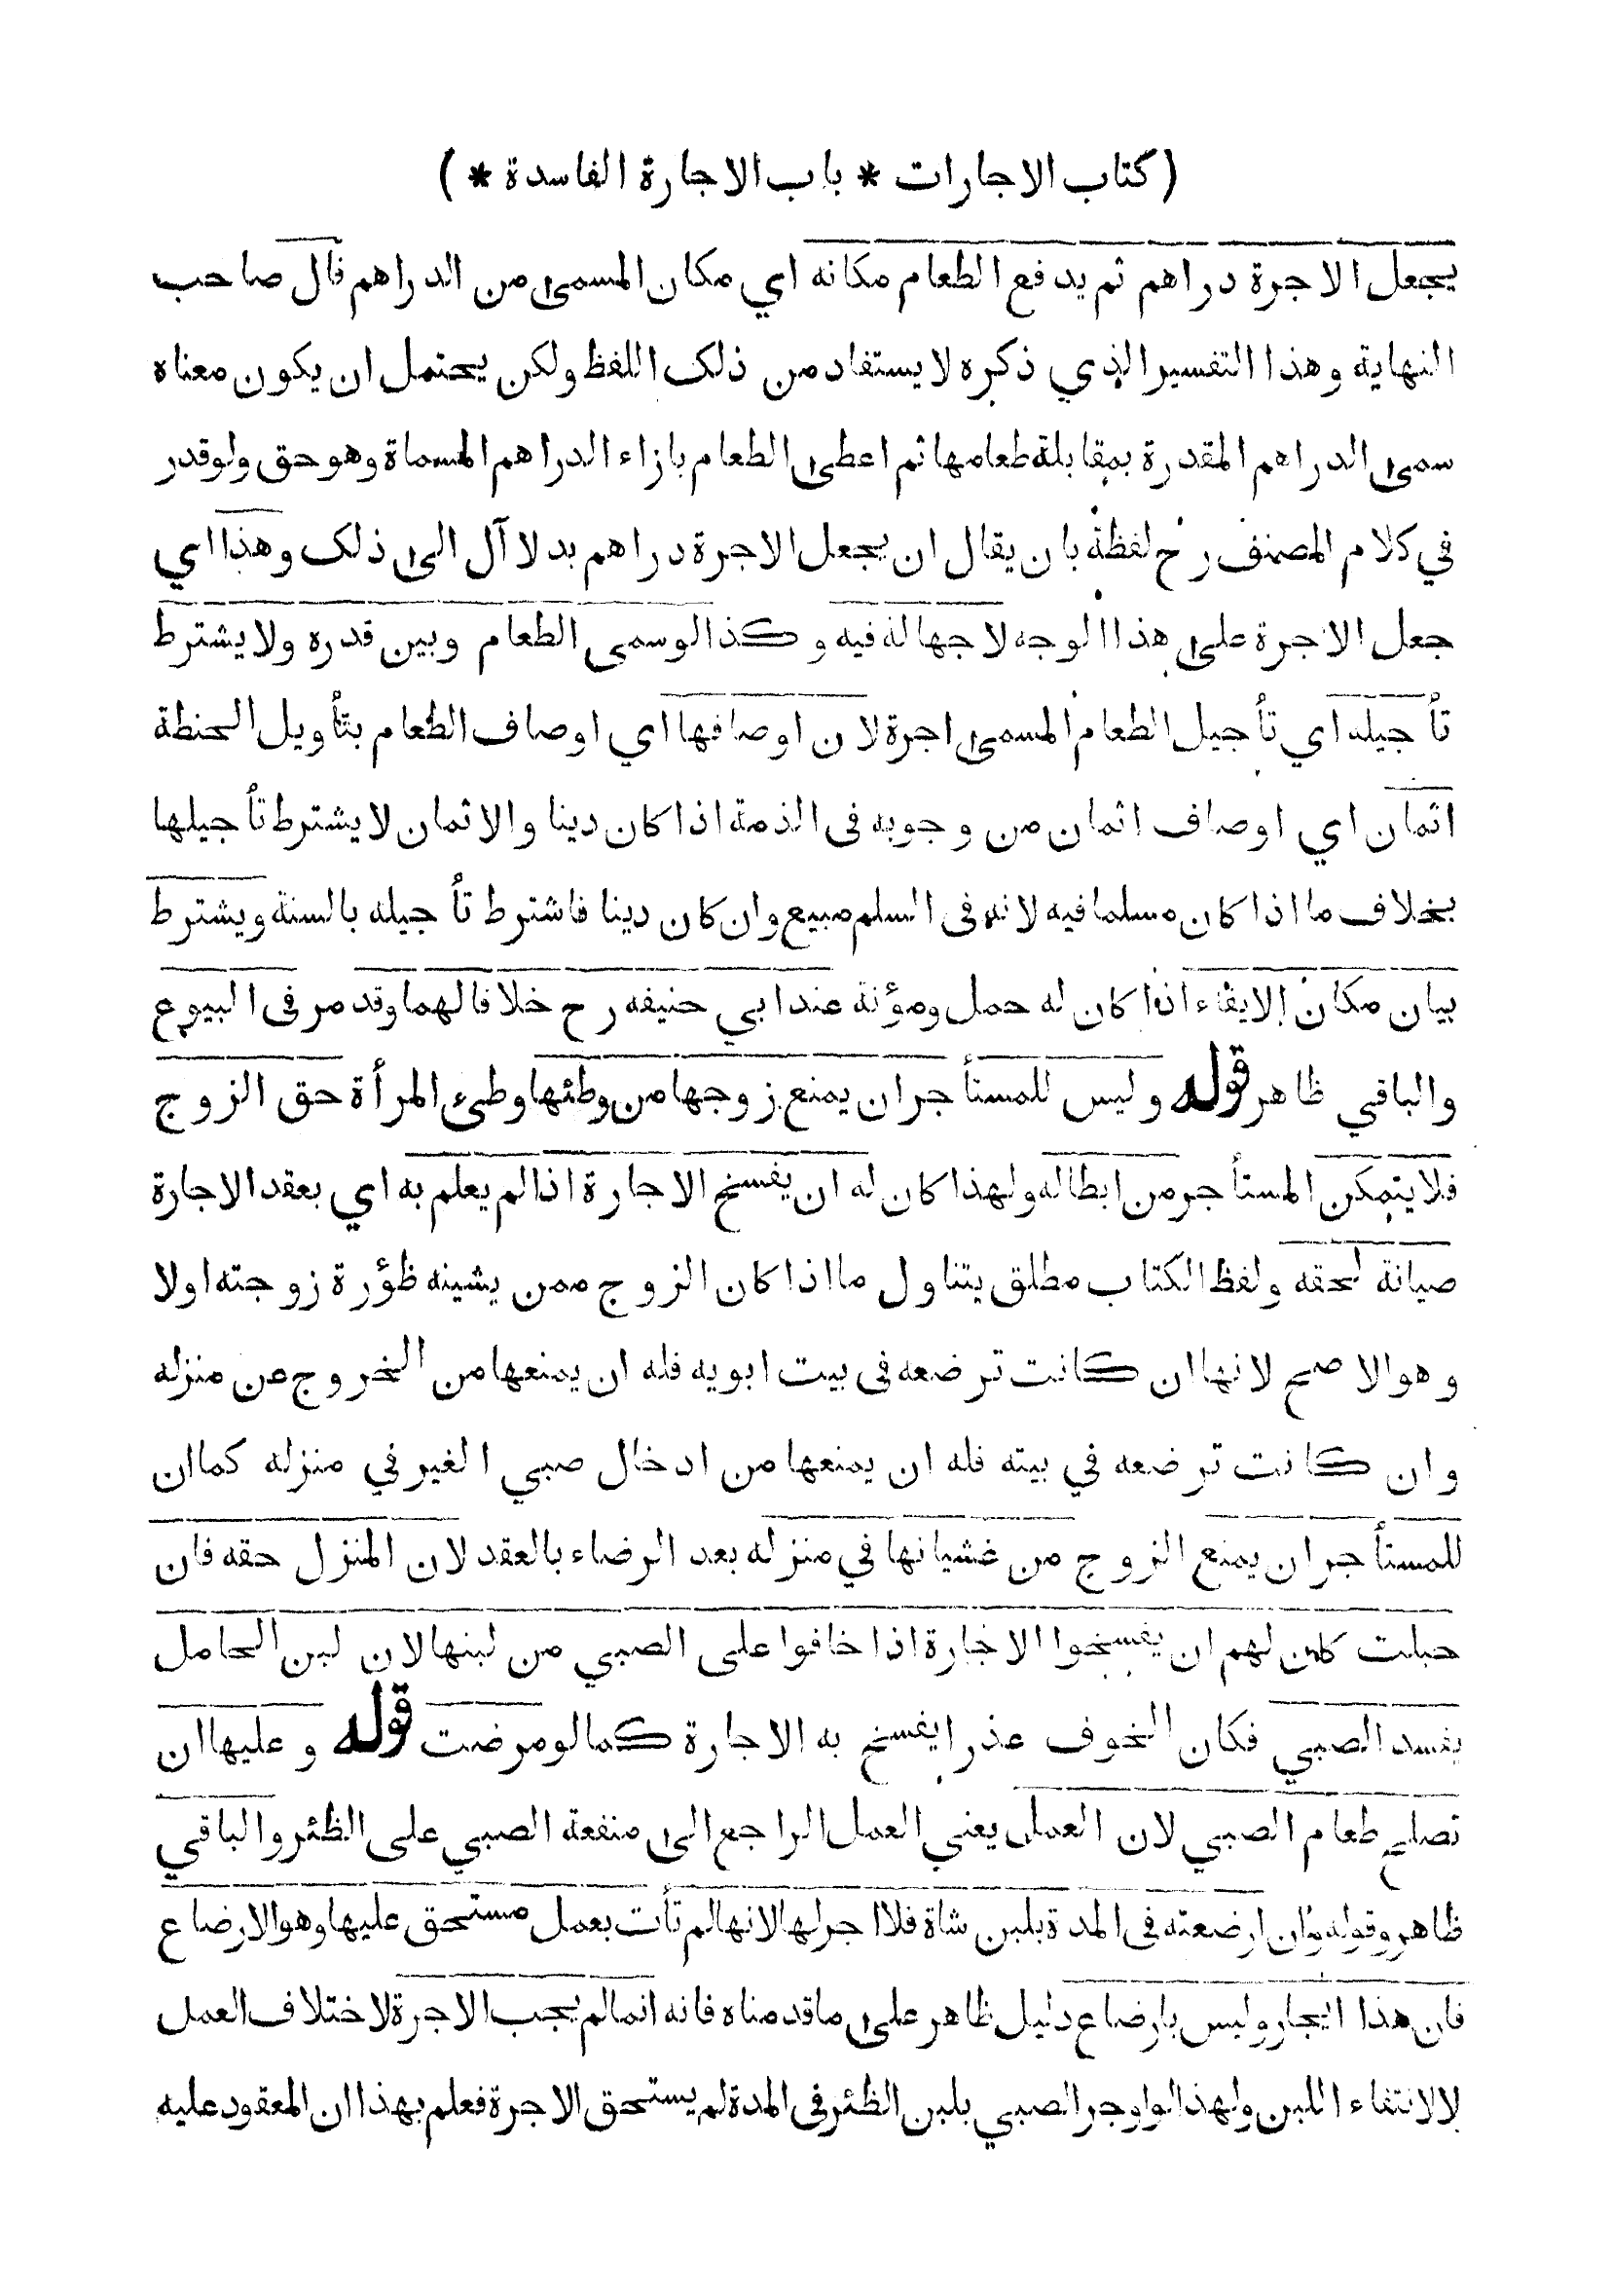 ( كتاب الاجارات * باب الاجارة الفاسدة * )
يجعل الاجرة دراهم ثم يدفع الطعام مكانه اي مكان المسمى من الدراهم قال صاحب
النهاية وهذا التفسير الذي ذكره لا يستفاد من ذلك اللفظ ولكن يحتمل ان يكون معناه
سمى الدراهم المقدرة بمقابلة طعامها ثم اعطى الطعام بازاء الدراهم المسماة وهو حق ولو قدر
في كلام المصنف رح لفظة بان يقال ان يجعل الاجرة دراهم بدلا آل الى ذلك وهذا اي
جعل الاجرة على هذا الوجه لا جهالة فيه وكذا لو سمى الطعام وبين قدره ولا يشترط
تأجيله اي تأجيل الطعام المسمى اجرة لان اوصافها اي اوصاف الطعام بتأويل الحنطة
اثمان اي اوصاف اثمان من وجوبه في الذمة اذا كان دينا والاثمان لا يشترط تأجيلها
بخلاف ما اذا كان مسلما فيه لانه في السلم مبيع وان كان دينا فاشترط تأجيله بالسنة ويشترط
بيان مكان الايفاء اذا كان له حمل ومؤنة عند ابي حنيفه رح خلافا لهما وقد مر في البيوع
والباقي ظاهر قوله وليس للمستأجر ان يمنع زوجها من وطئها وطىء المرأة حق الزوج
فلا يتمكن المستأجر من ابطاله ولهذا كان له ان يفسخ الاجارة اذا لم يعلم به اي بعقد الاجارة
صيانة لحقه ولفظ الكتاب مطلق يتناول ما اذا كان الزوج ممن يشينه ظؤرة زوجته اولا
وهو الاصح لانها ان كانت ترضعه في بيت ابويه فله ان يمنعها من الخروج عن منزله
وان كانت ترضعه في بيته فله ان يمنعها من ادخال صبي الغير في منزله كما ان
للمستأجر ان يمنع الزوج من غشيانها في منزله بعد الرضاء بالعقد لان المنزل حقه فان
حبلت كان لهم ان يفسخوا الاجارة اذا خافوا على الصبي من لبنها لان لبن الحامل
يفسد الصبي فكان الخوف عذرا يفسخ به الاجارة كما لو مرضت قوله وعليها ان
تصلح طعام الصبي لان العمل يعني العمل الراجع الى منفعة الصبي على الظئر والباقي
ظاهر وقوله وان ارضعته في المدة بلبن شاة فلا اجر لها لانها لم تأت بعمل مستحق عليها وهو الارضاع
فان هذا ايجار وليس بارضاع دليل ظاهر على ما قدمناه فانه انما لم يجب الاجرة لاختلاف العمل
لا لانتفاء اللبن ولهذا لو اوجر الصبي بلبن الظئر في المدة لم يستحق الاجرة فعلم بهذا ان المعقود عليه